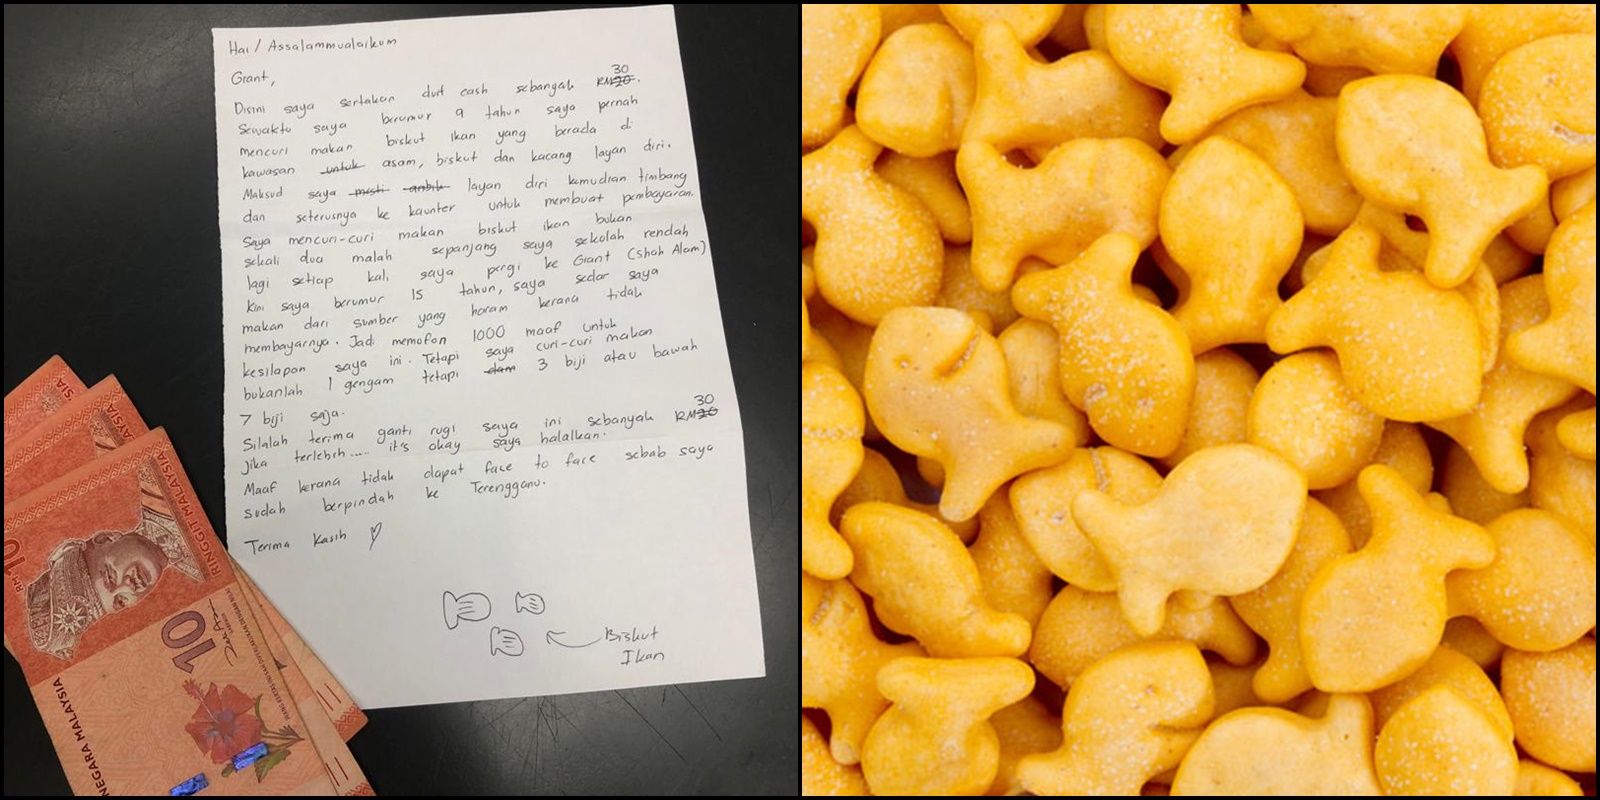 Hai / Assalammualaikum
Grant,
30
Disini saya sertakan duit cash sebanyak RM20.
Sewaktu saya berumur 9 tahun saya pernah
mencuri makan biskut ikan yang berada di
kawasan untuk asam, biskut dan kacang layan diri.
Maksud saya mesti ambik layan diri kemudian timbang
dan seterusnya ke kaunter untuk membuat pembayaran.
Saya mencuri-curi makan biskut ikan bukan
sekali dua malah sepanjang saya sekolah rendah
lagi setiap kali saya pergi ke Giant (Shah Alam)
Kini saya berumur 15 tahun, saya sedar saya
makan dari sumber yang haram kerana tidak
membayarnya. Jadi memofon 1000 maaf untuk
kesilapan saya ini. Tetapi saya curi-curi makan
bukanlah 1 gengam tetapi dam 3 biji atau bawah
7 biji saja.
30
Silalah terima ganti rugi saya ini sebanyak RM20
Jika terlebih.... it's okay saya halalkan.
Maaf kerana tidak dapat face to face sebab saya
sudah berpindah ke Terengganu.
Terima Kasih
Biskut
Ikan
RM10
RINGGIT MALAYSIA
10
NEGARA MALAYSIA